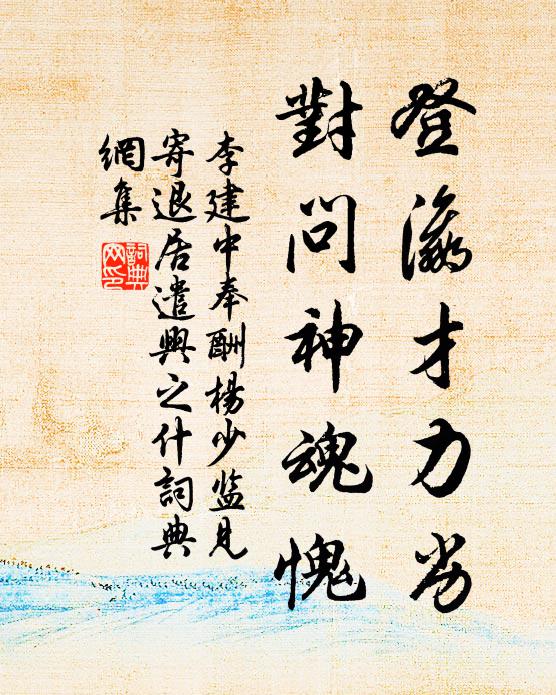 登瀛才力劣
對問神魂愧
李建中奉酬楊少监見
寄退居遣興之什詞典
網集
詞典
网印